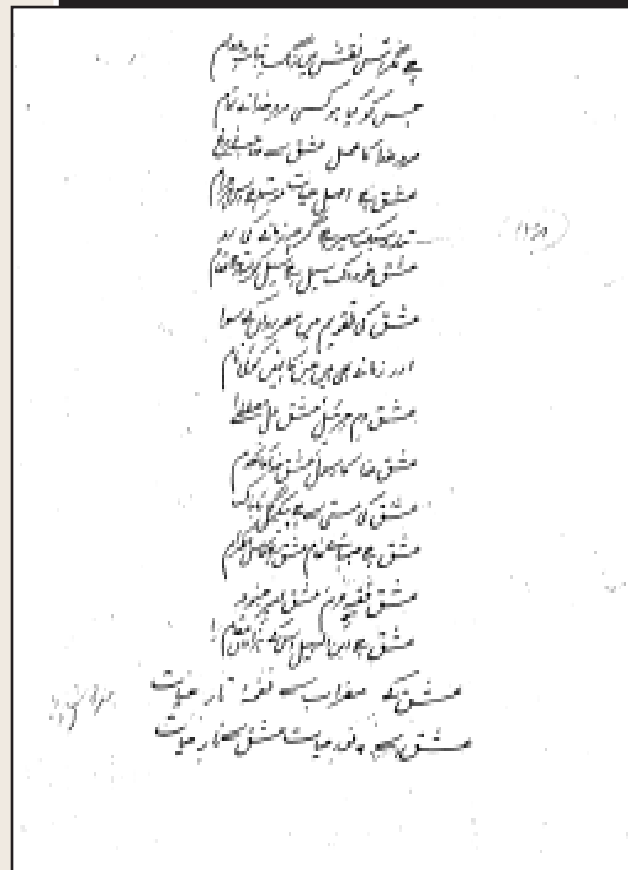 ہے مگر اس نقش میں رنگ ثبات دوام
جس کو کیا ہو کسی مرد خدا نے تمام
مرد خدا کا عمل عشق سے صاحب فروغ
عشق ہے اصل حیات موت ہے اس پر حرام
تند و سبک سیر ہے گرچہ زمانے کی رو
عشق خود اک سیل ہے سیل کو لیتا ہے تھام
عشق کی تقویم میں عصر رواں کے سوا
اور زمانے بھی ہیں جن کا نہیں کوئی نام
عشق دم جبرئیل عشق دل مصطفیٰ
عشق خدا کا رسول عشق خدا کا کلام
عشق کی مستی سے ہے پیکر گل تابناک
عشق ہے صہبائے خام عشق ہے کاس الکرام
عشق فقیہ حرم عشق امیر جنود
عشق ہے ابن السبیل اس کے ہزاروں مقام!
عشق کے مضراب سے نغمۂ تار حیات
عشق سے نور حیات عشق سے نار حیات